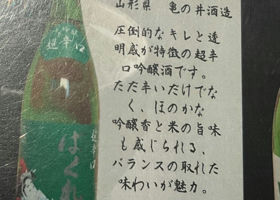 山形県 亀の井酒造
圧倒的なキレと透
明感が特徴の超辛
口吟醸酒です。
ただ辛いだけでな
く、ほのかな
吟醸香と米の旨味
も感じられる、
バランスの取れた
味わいが魅力。
超辛口
はくれ